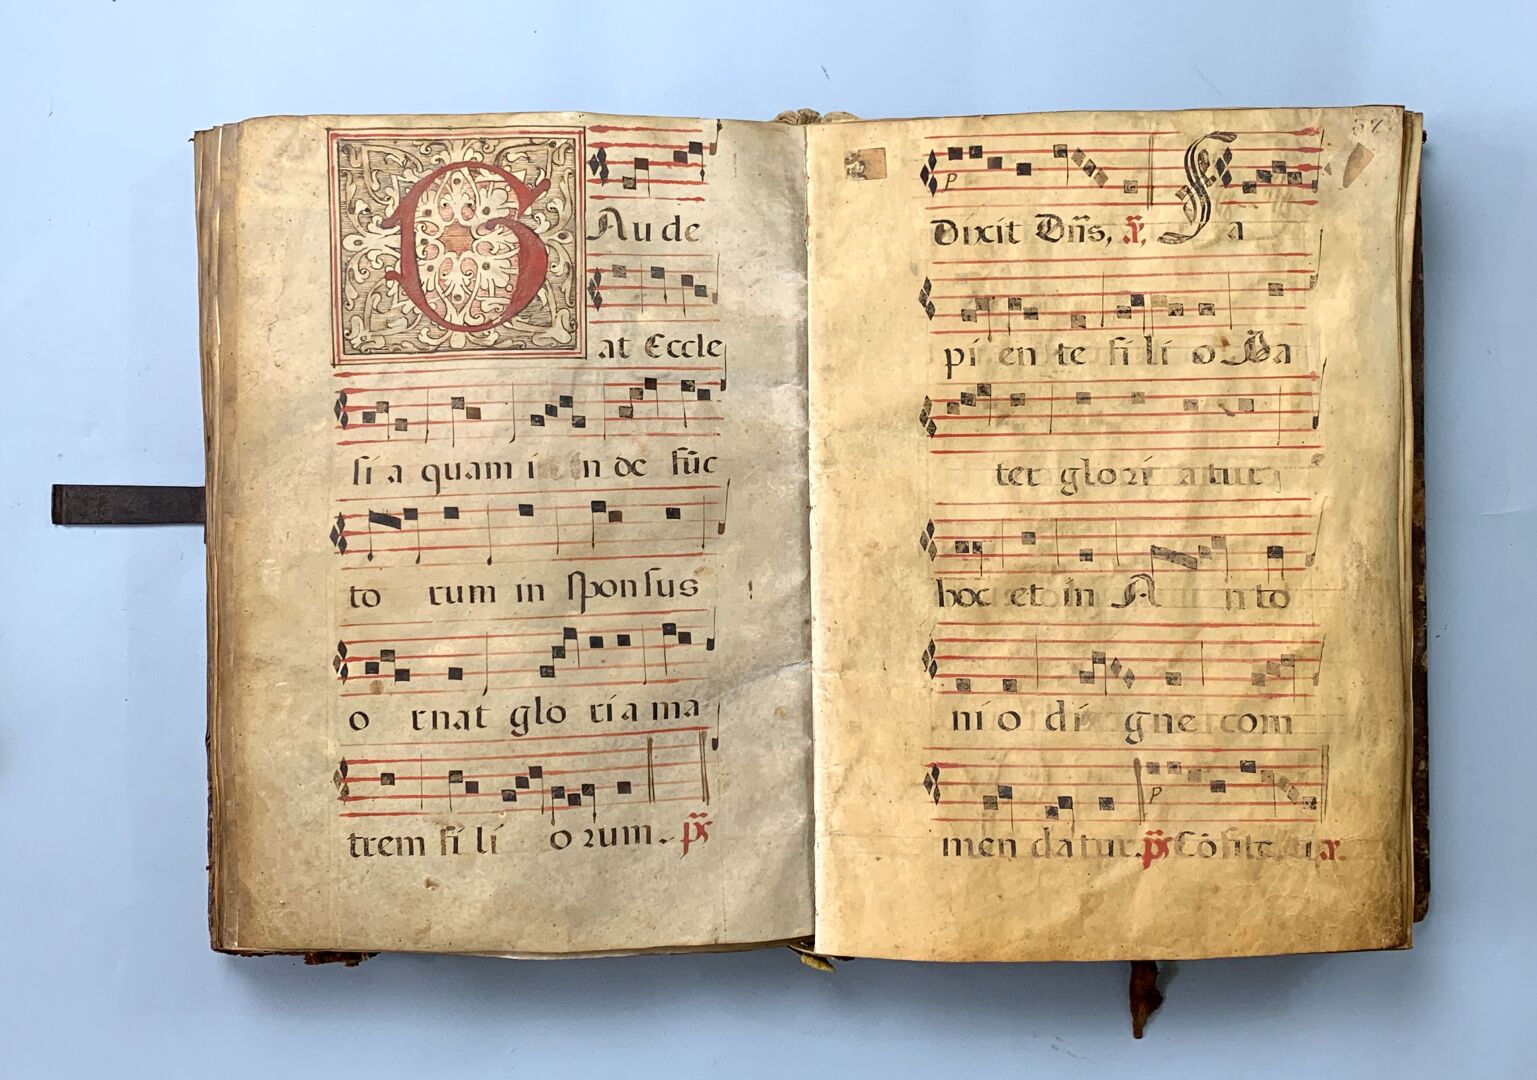 GAude
at Eccle
si a quam in de fūc
to rum in sponsus
o rnat glo ria ma
trem fi li o rum. ps
37
P
Dixit Dn̄s, ꝟ, Sa
pi en te fi li o Ma
ter glori a tur
hoc et in A n to
ni o di gne com
P
men da tur. ps